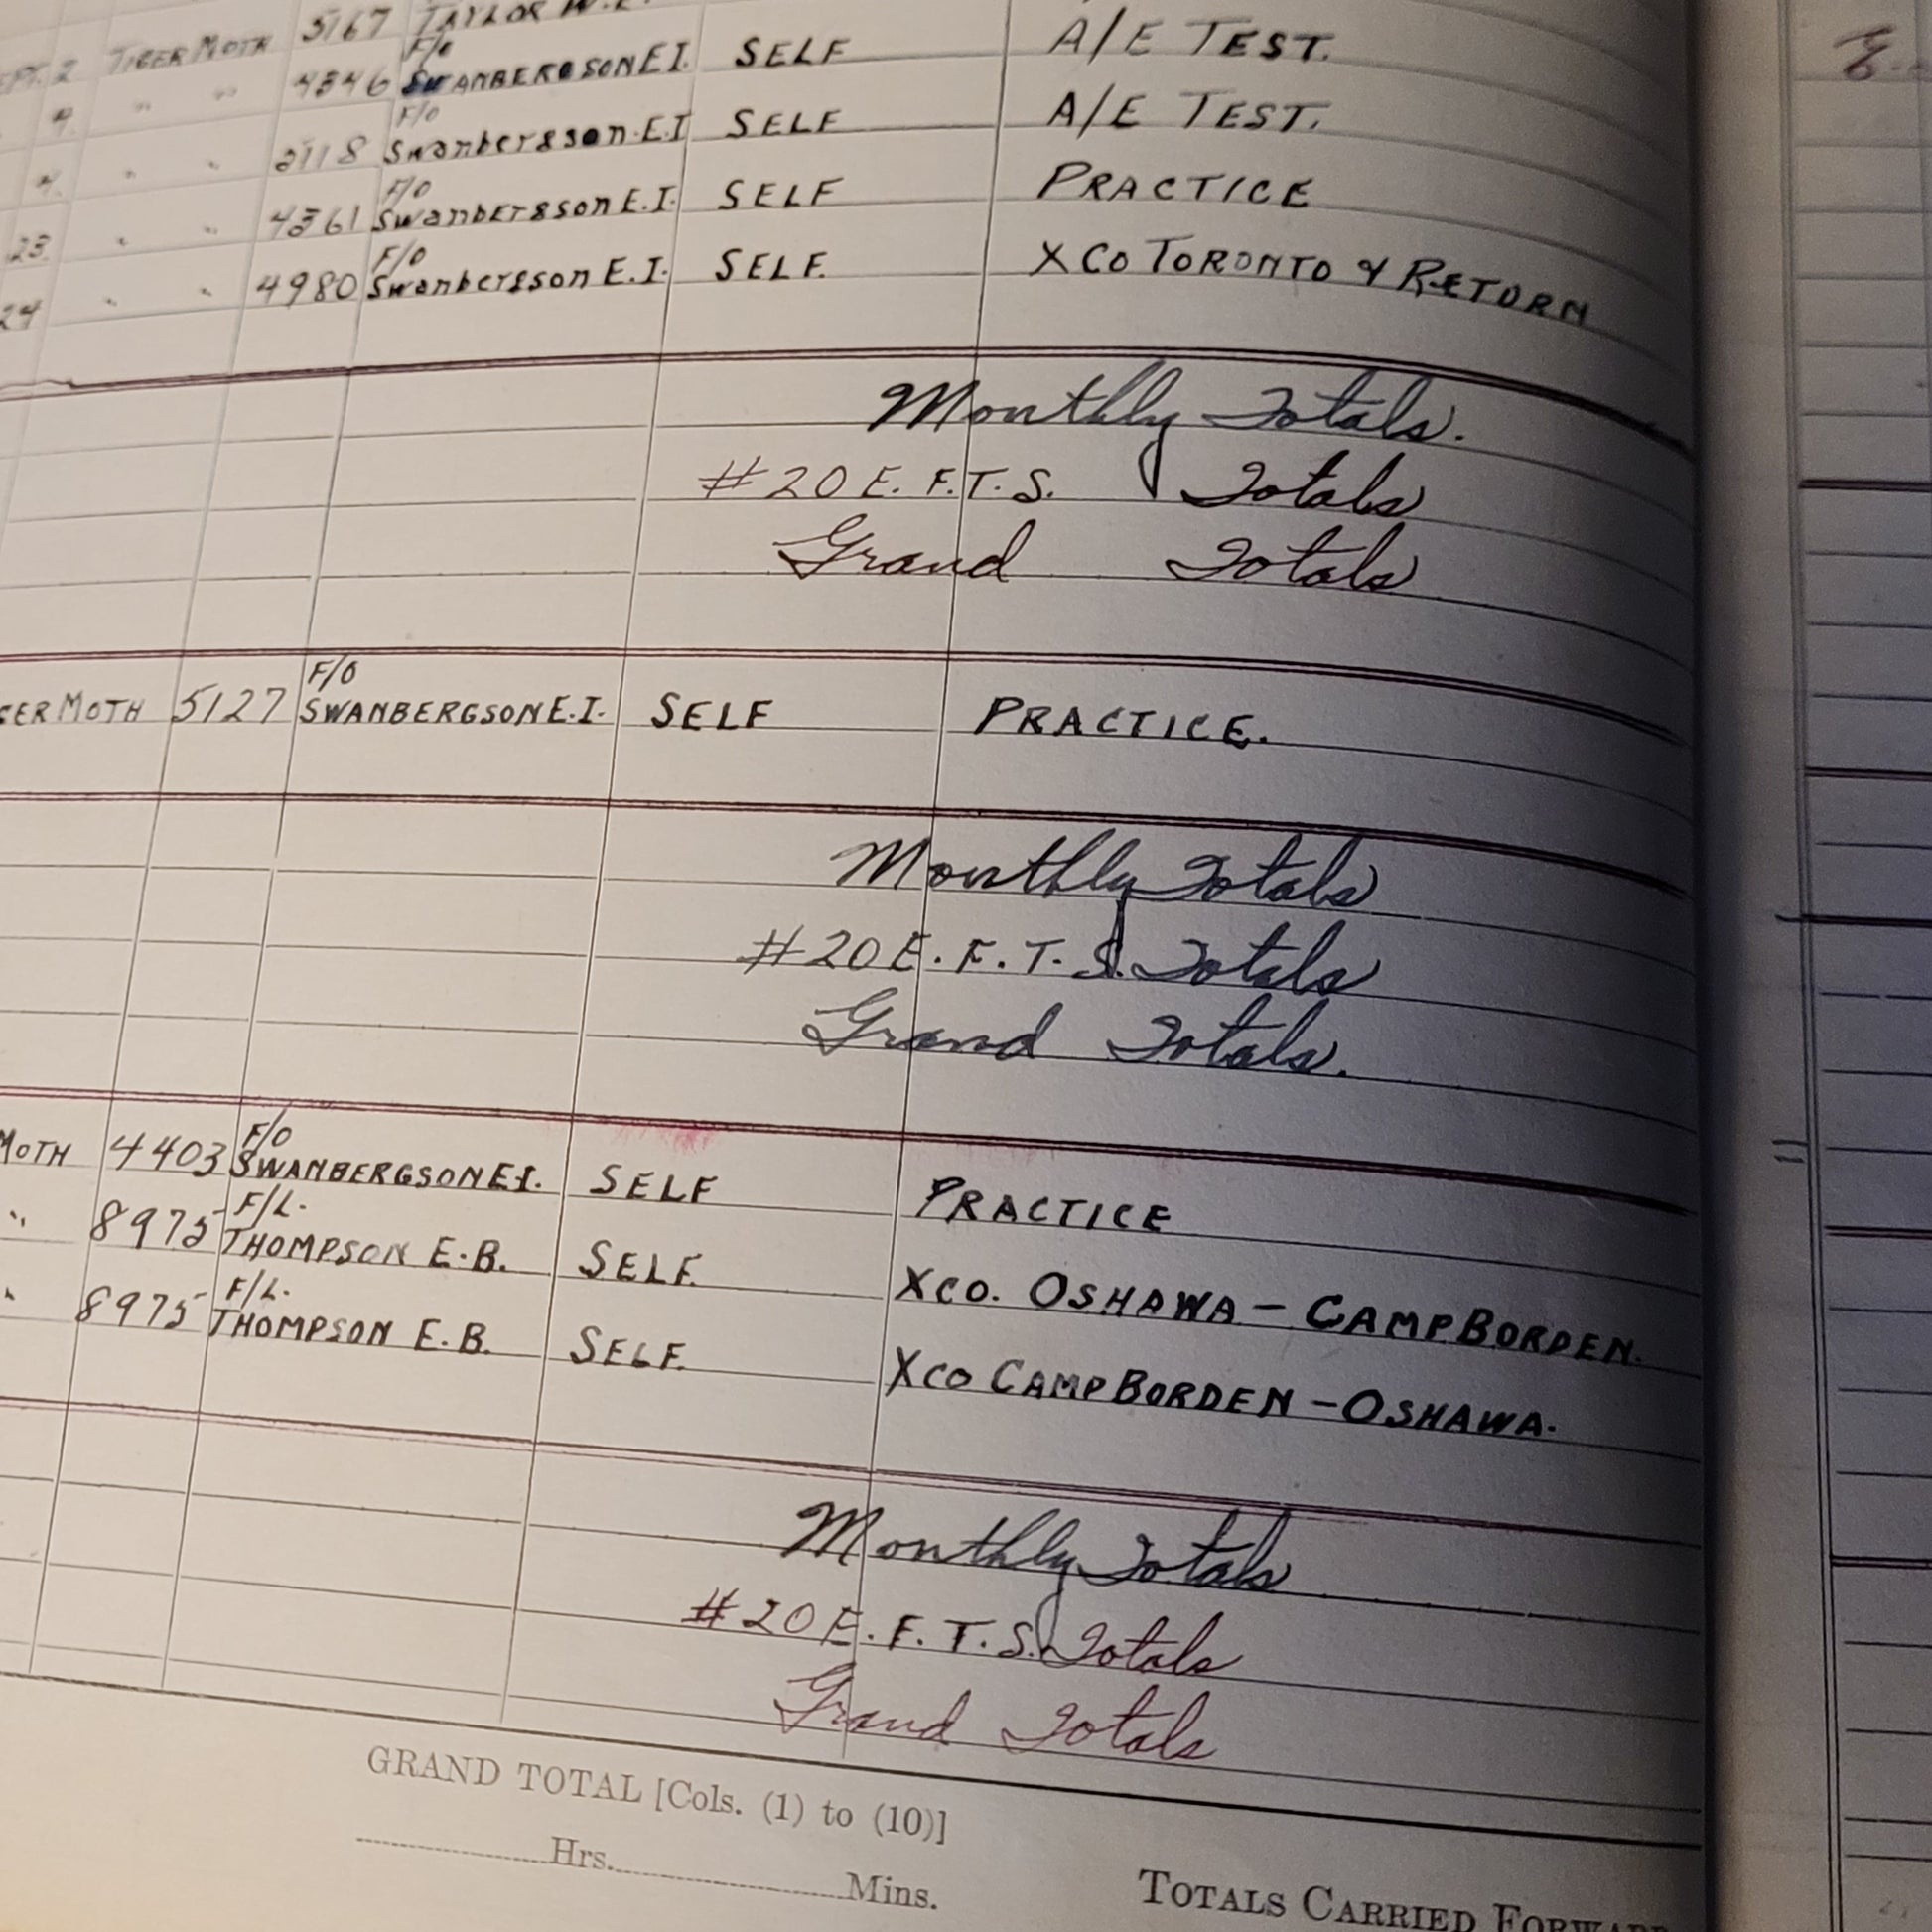 5167 TAYLOR
SEPT. 2 TIGER MOTH 4846 F/O SWANBERGSON E.I. SELF A/E TEST.
4. " " 2118 F/O Swanbergsson E.I SELF A/E TEST.
4. " " 4361 F/O Swanbergsson E.I. SELF PRACTICE
23. " " 4980 F/O Swanbergsson E.I. SELF. XCO TORONTO & RETURN
24
Monthly Totals.
#20 E.F.T.S. Totals
Grand Totals
GER MOTH 5127 F/O SWANBERGSON E.I. SELF PRACTICE.
Monthly Totals
#20 E.F.T.S. Totals
Grand Totals.
MOTH 4403 F/O SWANBERGSON E.I. SELF PRACTICE
" 8975 F/L. THOMPSON E.B. SELF. XCO. OSHAWA – CAMP BORDEN.
" 8975 F/L. THOMPSON E.B. SELF. XCO CAMP BORDEN – OSHAWA.
Monthly Totals
#20 E.F.T.S. Totals
Grand Totals
GRAND TOTAL [Cols. (1) to (10)]
Hrs. Mins.
TOTALS CARRIED FORWARD